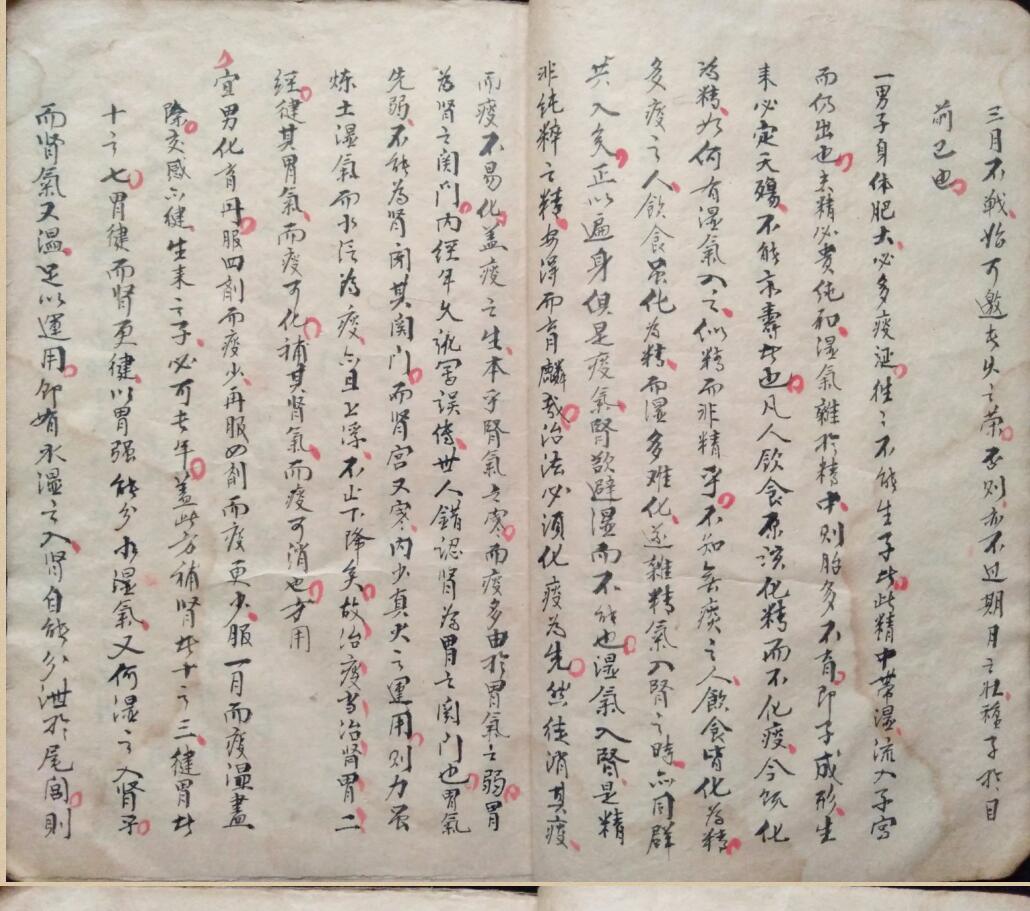 三月不戰始可邀長久之榮否則亦不過期月之壯種子於目
前已也
一男子身体肥大必多痰涎往々不能生子此精中帶濕流入子宮
而仍出也夫精必貴純和濕氣雜於精中則胎多不育即子成形生
来必定夭殤不能永壽者也凡人飲食原該化精而不化痰今既化
為精如何有濕氣入之似精而非精乎不知無痰之人飲食皆化為精
多痰之人飲食雖化為精而濕多难化遂雜精氣入腎之時亦同群
共入矣正以遍身俱是痰氣腎欲避濕而不能也濕氣入腎是精
非純粹之精安得而育麟哉治法必須化痰為先然徒消其痰
而痰不易化蓋痰之生本乎腎氣之寒而痰多由於胃氣之弱胃
為腎之関门内經年久訛寫误傳世人錯認腎為胃之関门也胃氣
先弱不能為腎闭其関门而腎宮又寒内少真火之運用則力虽
炼土濕氣而水泛為痰亦且上浮不止下降矣故治痰当治腎胃二
經健其胃氣而痰可化補其腎氣而痰可消也方用
宜男化育丹服四劑而痰少再服四劑而痰更少服一月而痰濕盡
除交感亦健生来之子必可長年蓋此方補腎者十之三健胃者
十之七胃健而腎更健以胃强能分水濕氣又何濕之入腎乎
而腎氣又温足以運用即有水濕之入腎自能分泄於尾閭則